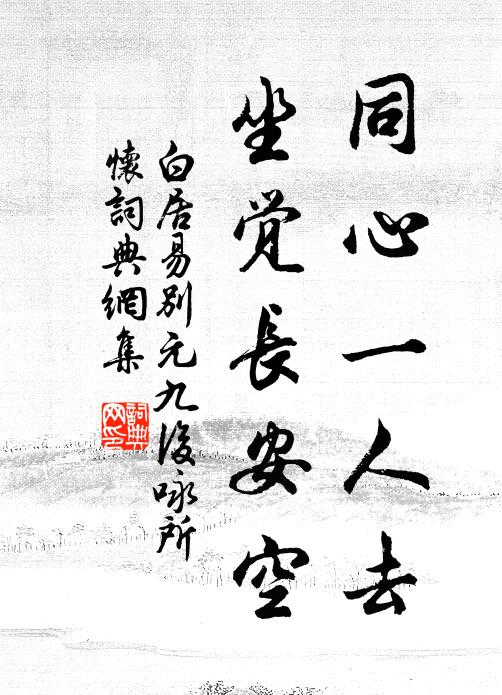 同心一人去
坐觉長安空
白居易别元九後咏所
懷詞典網集
詞典网印